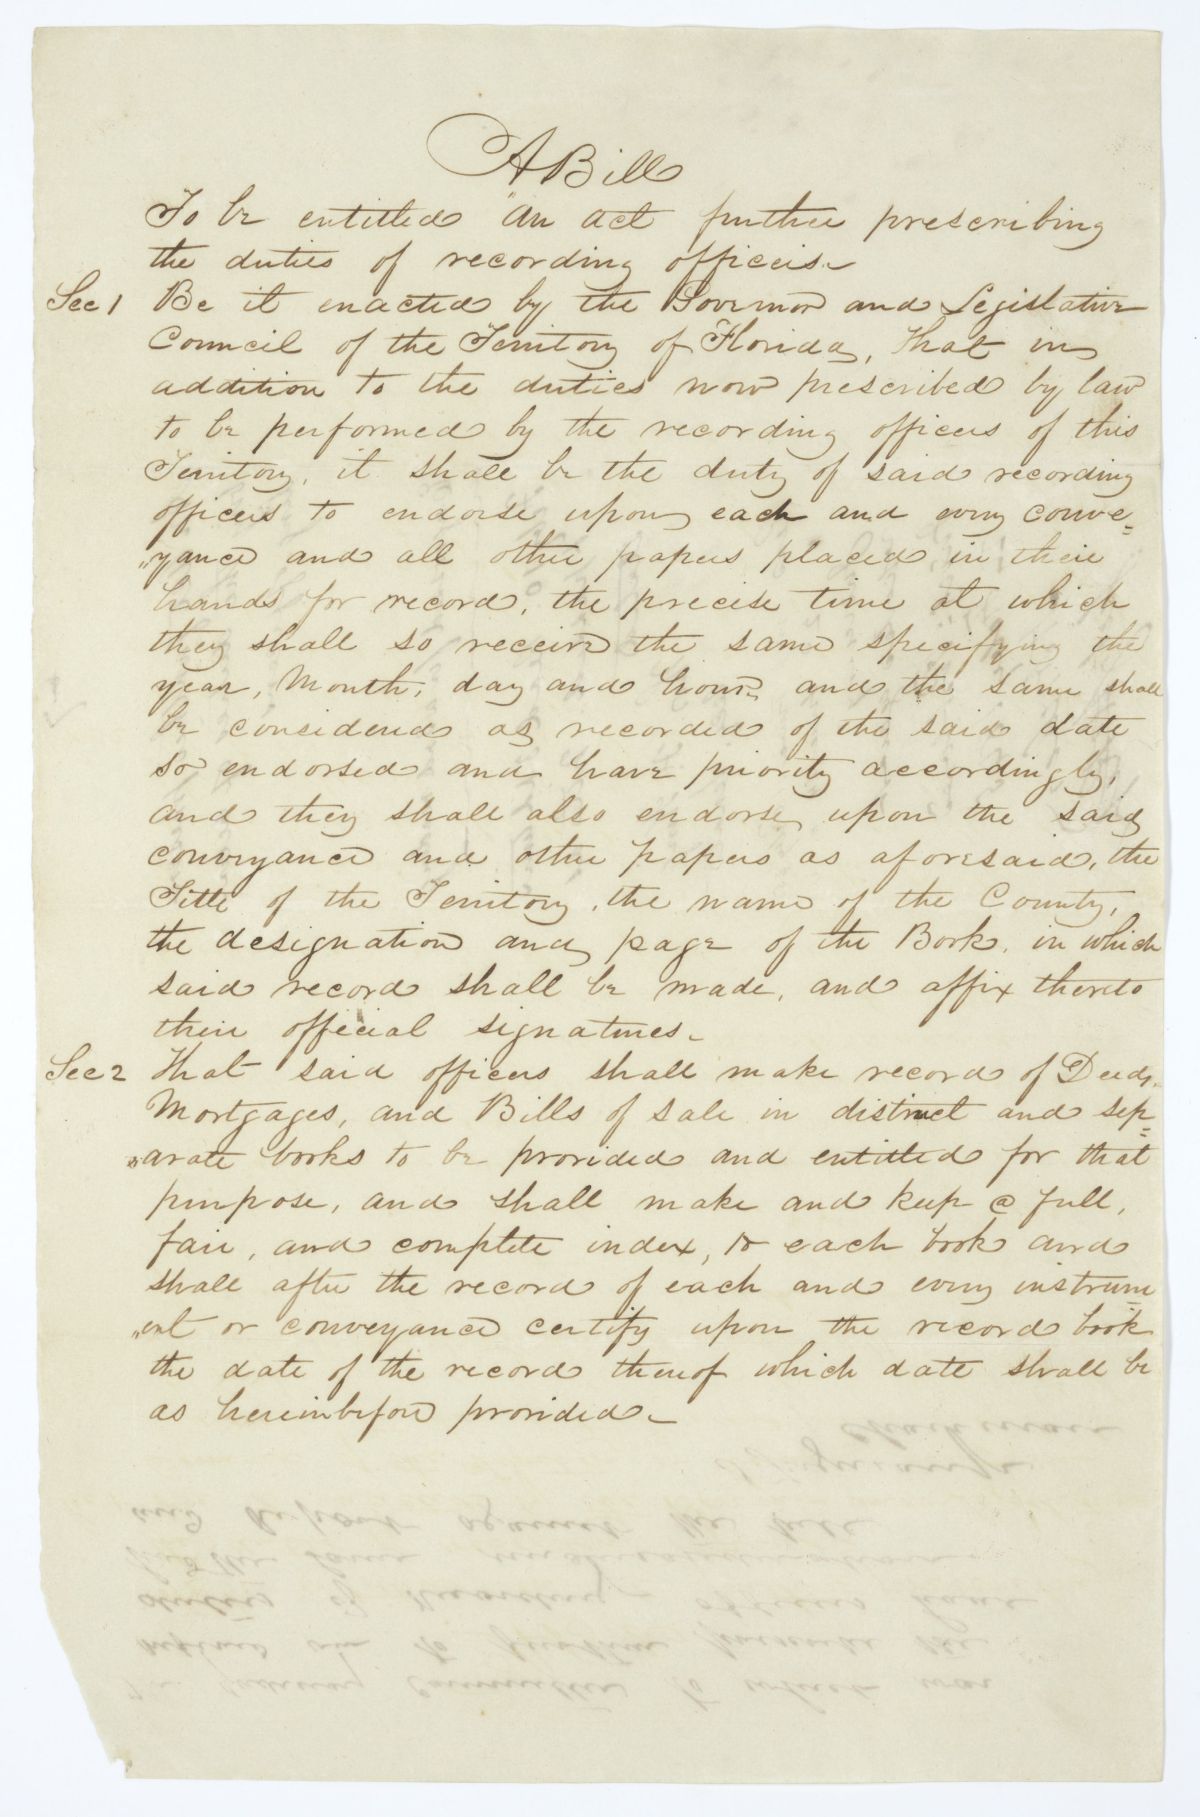 A Bill
To be entitled "An act further prescribing
the duties of recording officers.
Sec 1 Be it enacted by the Governor and Legislative
Council of the Territory of Florida, That in
addition to the duties now prescribed by law
to be performed by the recording officers of this
Territory, it shall be the duty of said recording
officers to endorse upon each and every conve=
"yance and all other papers placed in their
hands for record, the precise time at which
they shall so receive the same specifying the
year, Month, day and hour, and the same shall
be considered as recorded of the said date
so endorsed and have priority accordingly,
and they shall also endorse upon the said
conveyance and other papers as aforesaid, the
Title of the Territory, the name of the County,
the designation and page of the Book, in which
said record shall be made, and affix thereto
their official signatures.
Sec 2 That said officers shall make record of Deeds,
Mortgages, and Bills of sale in distinct and sep=
"arate books to be provided and entitled for that
purpose, and shall make and keep a full,
fair, and complete index, to each book and
shall after the record of each and every instrum=
"ent or conveyance certify upon the record book
the date of the record thereof which date shall be
as hereinbefore provided.